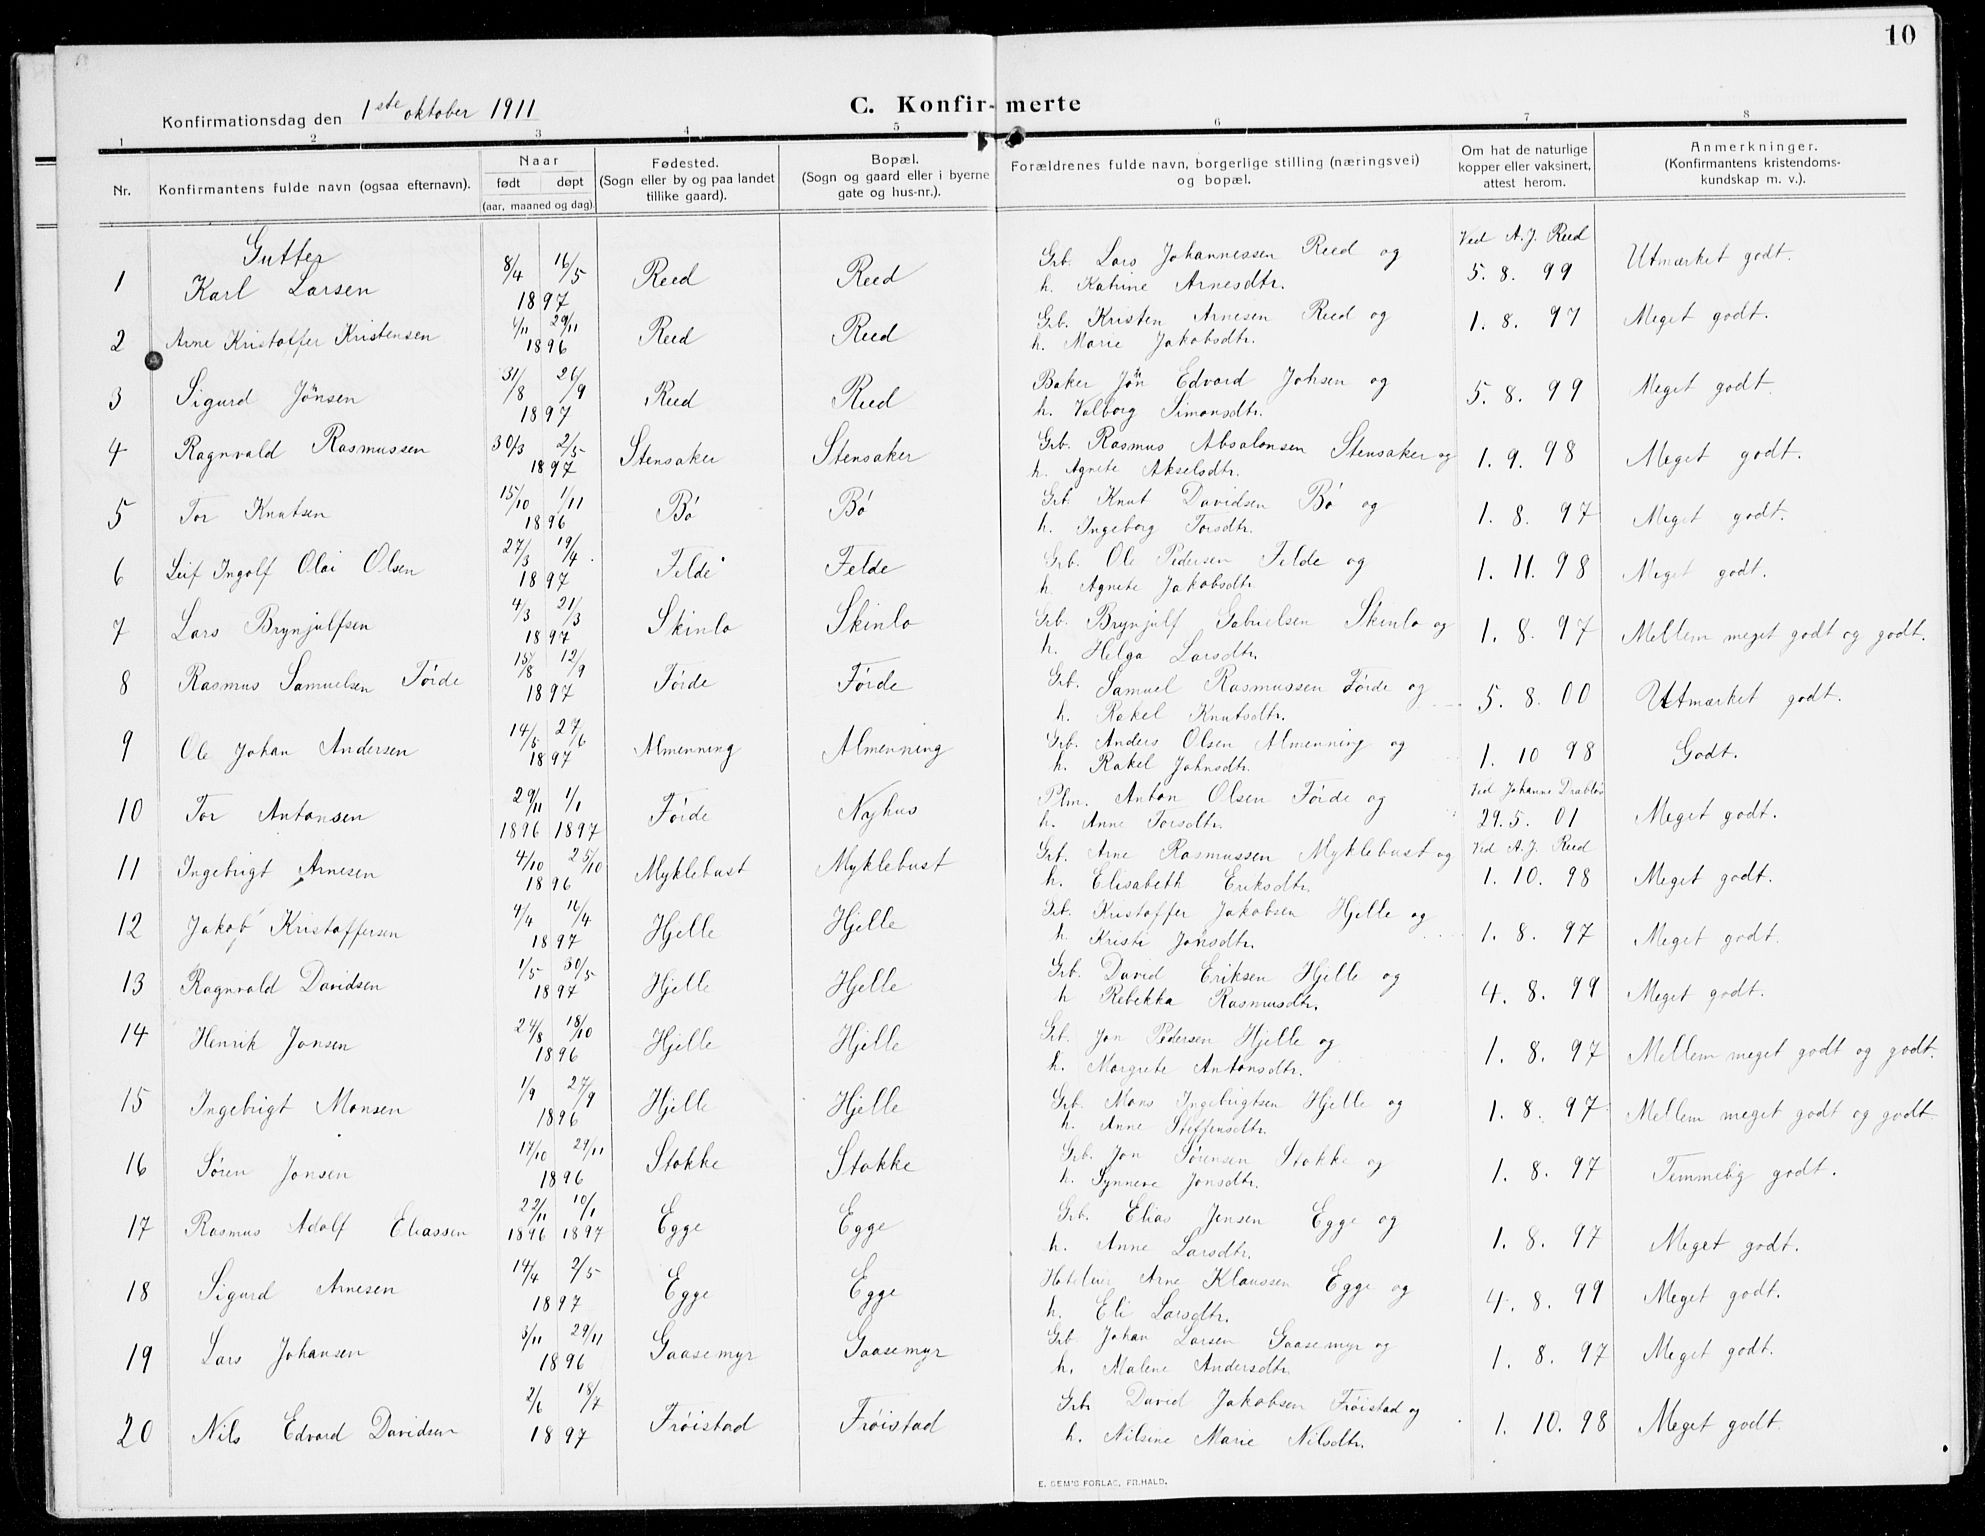 10
C. Konfirmerte
Konfirmationsdag den 1ste oktober 1911
1 2 3 4 5 6 7 8
Nr. Konfirmantens fulde navn (ogsaa efternavn). Naar født døpt (aar, maaned og dag). Fødested. (Sogn eller by og paa landet tillike gaard). Bopæl. (Sogn og gaard eller i byerne gate og hus-nr.). Forældrenes fulde navn, borgerlige stilling (næringsvei) og bopæl. Om hat de naturlige kopper eller vaksinert, attest herom. Anmerkninger. (Konfirmantens kristendoms-kundskap m. v.).
Gutter
1 Karl Larsen 8/4 16/5 1897 Reed Reed Grb. Lars Johannessen Reed og h. Katrine Arnesdtr. Ved A. J. Reed 5. 8. 99 Utmærket godt.
2 Arne Kristoffer Kristensen 29/11 1896 Reed Reed Grb. Kristen Arnesen Reed og h. Marie Jakobsdtr. 1. 8. 97 Meget godt.
3 Sigurd Jónsen 31/8 26/9 1897 Reed Reed Baker Jón Edvard Johsen og h. Valborg Simonsdtr. 5. 8. 99 Meget godt.
4 Ragnvald Rasmussen 30/3 2/5 1897 Stensaker Stensaker Grb. Rasmus Absalonsen Stensaker og h. Agnete Akselsdtr. 1. 9. 98 Meget godt.
5 Tor Knutsen 15/10 1/11 1896 Bó Bó Grb. Knut Davidsen Bó og h. Ingeborg Torsdtr. 1. 8. 97 Meget godt.
6 Leif Ingolf Olai Olsen 27/3 19/4 1897 Felde Felde Grb. Ole Pedersen Felde og h. Agnete Jakobsdtr. 1. 11. 98 Meget godt.
7 Lars Brynjulfsen 4/3 21/3 1897 Skinlo Skinlo Grb. Brynjulf Gabrielsen Skinlo og h. Helga Larsdtr. 1. 8. 97 Mellem meget godt og godt.
8 Rasmus Samuelsen Förde 15/8 12/9 1897 Förde Förde Grb. Samuel Rasmussen Förde og h. Rakel Knutsdtr. 5. 8. 00 Utmærket godt.
9 Ole Johan Andersen 14/5 27/6 1897 Almenning Almenning Grb. Anders Olsen Almenning og h. Rakel Johnsdtr. 1. 10 98 Godt.
10 Tor Antonsen 29/11 1/1 1896 1897 Förde Nyhus Plm. Anton Olsen Förde og h. Anne Torsdtr. Ved Johanne Drabløs 29. 5. 01 Meget godt.
11 Ingebrigt Arnesen 4/10 25/10 1896 Myklebust Myklebust Grb. Arne Rasmussen Myklebust og h. Elisabeth Eriksdtr. Ved A. J. Reed 1. 10. 98 Meget godt.
12 Jakob Kristoffersen 4/4 16/4 1897 Hjelle Hjelle Grb. Kristoffer Jakobsen Hjelle og h. Kristi Jónsdtr. 1. 8. 97 Meget godt.
13 Ragnvald Davidsen 1/5 30/5 1897 Hjelle Hjelle Grb. David Eriksen Hjelle og h Rebekka Rasmusdtr. 4. 8. 99 Meget godt.
14 Henrik Jonsen 24/8 18/10 1896 Hjelle Hjelle Grb. Jon Pedersen Hjelle og h. Margrete Antonsdtr. 1. 8. 97 Mellem meget godt og godt.
15 Ingebrigt Monsen 1/9 27/9 1896 Hjelle Hjelle Grb. Mons Ingebrigtsen Hjelle og h. Anne Steffensdtr. 1. 8. 97 Mellem meget godt og godt
16 Sören Jonsen 17/10 29/11 1896 Stokke Stokke Grb. Jon Sörensen Stokke og h. Synneve Jonsdtr. 1. 8. 97 Temmelig godt.
17 Rasmus Adolf Eliassen 22/11 10/1 1896 1897 Egge Egge Grb. Elias Jensen Egge og h. Anne Larsdtr. 1. 8. 97 Meget godt.
18 Sigurd Arnesen 14/4 2/5 1897 Egge Egge Hoteleier Arne Klaussen Egge og h. Eli Larsdtr. 4. 8. 99 Meget godt.
19 Lars Johansen 3/11 29/11 1896 Gaasemyr Gaasemyr Grb Johan Larsen Gaasemyr og h. Malene Andersdtr. 1. 8. 97 Meget godt.
20 Nils Edvard Davidsen 2/6 18/7 1897 Fröistad Fröistad Grb David Jakobsen Fröistad og h. Nilsine Marie Nilsdtr. 1. 10. 98 Meget godt.
E. SEM'S FORLAG, FR.HALD.